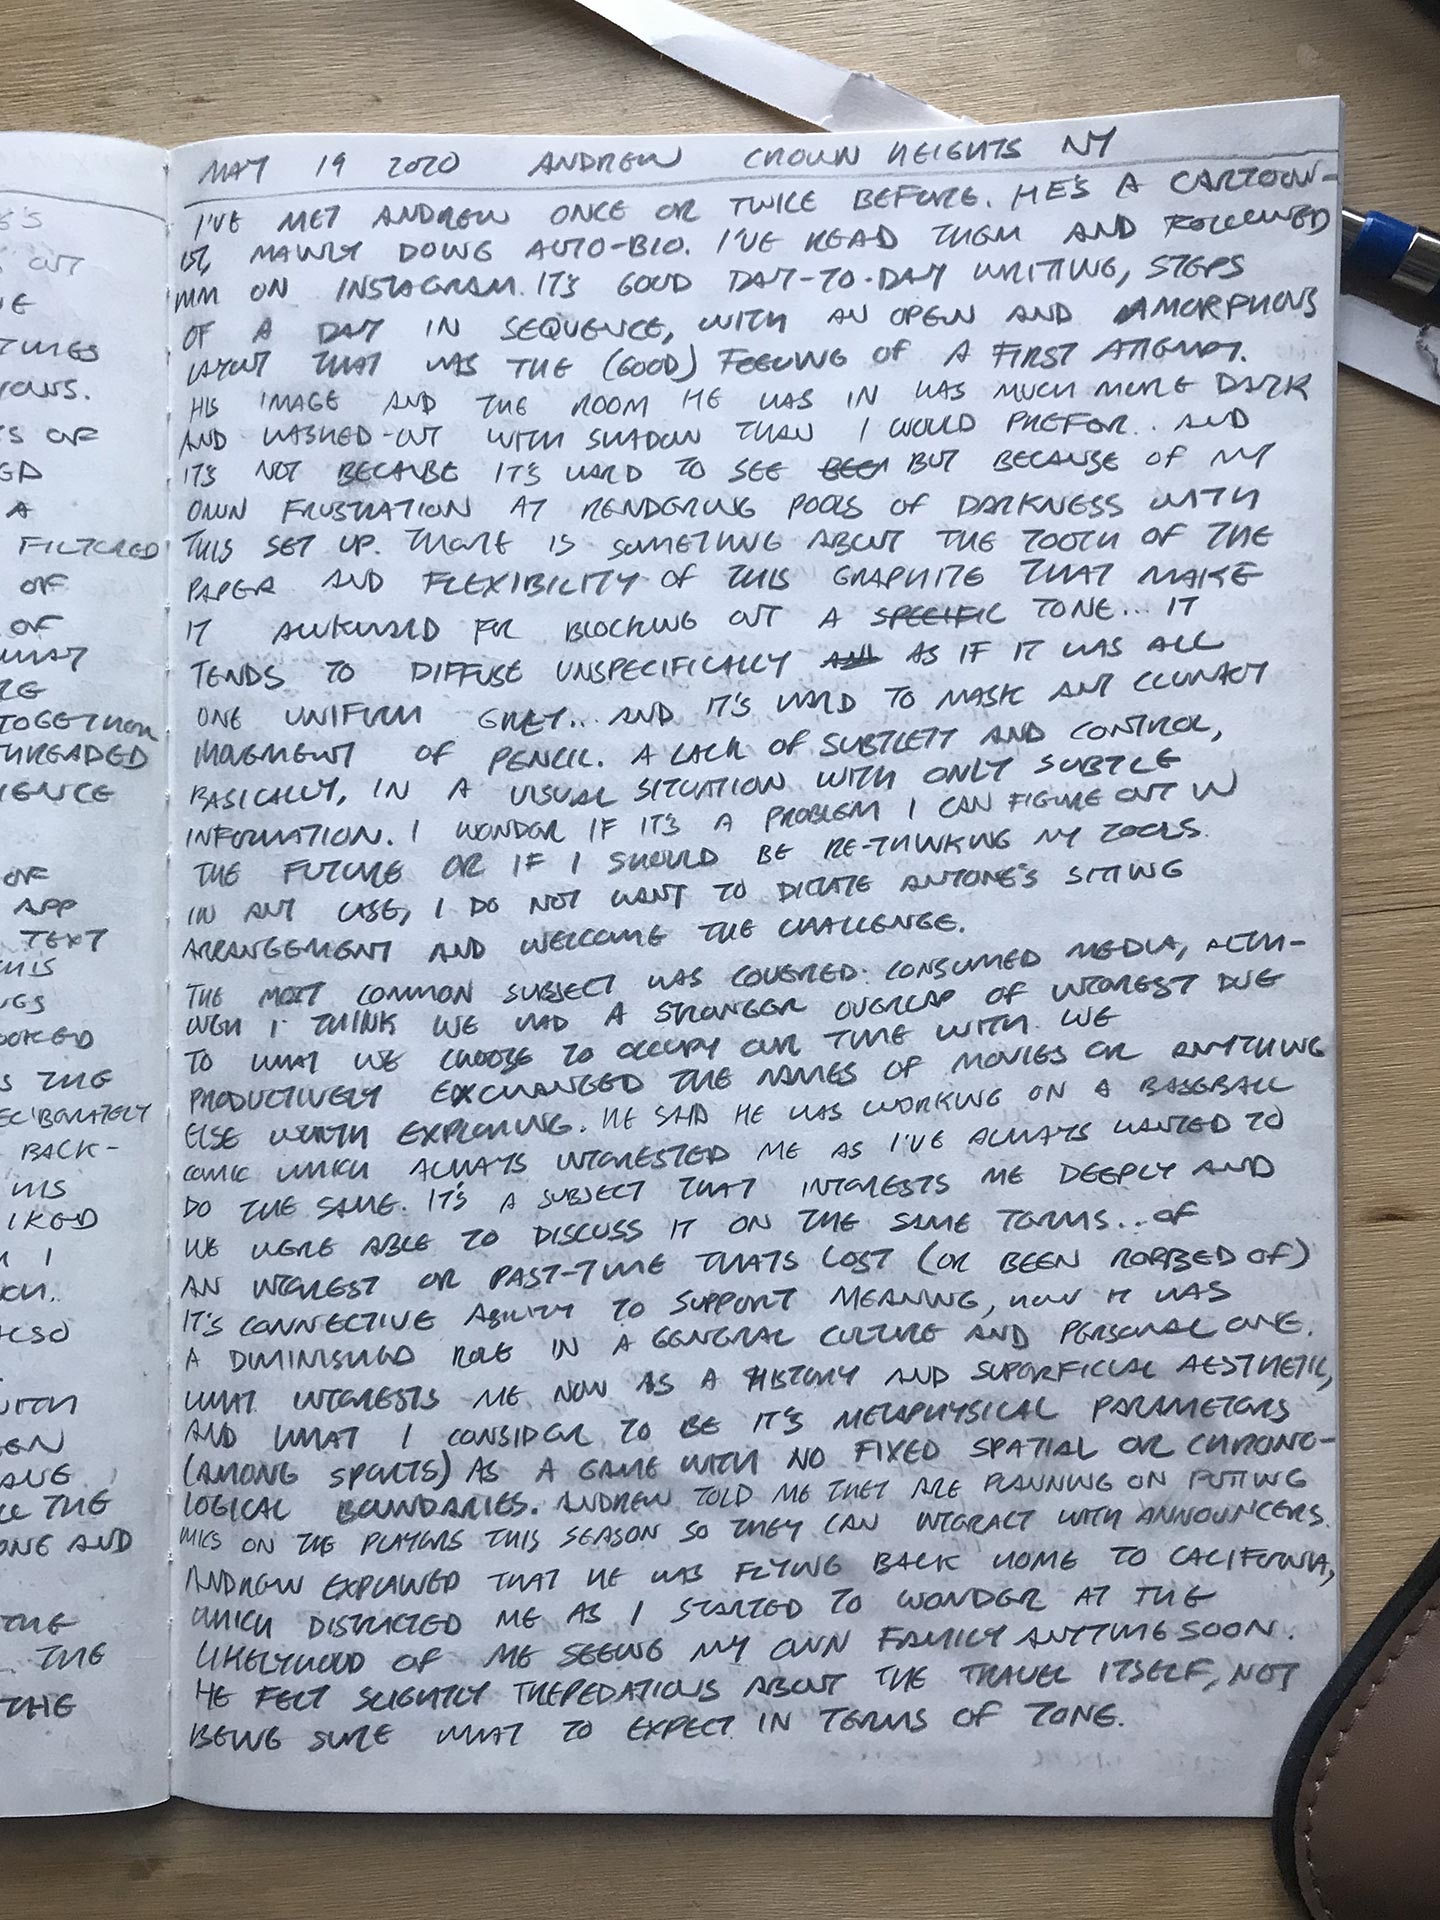 MAY 19 2020 ANDREW CROWN HEIGHTS NY
I'VE MET ANDREW ONCE OR TWICE BEFORE. HE'S A CARTOON-
IST, MAINLY DOING AUTO-BIO. I'VE READ THEM AND FOLLOWED
HIM ON INSTAGRAM. IT'S GOOD DAY-TO-DAY WRITING, STEPS
OF A DAY IN SEQUENCE, WITH AN OPEN AND AMORPHOUS
LAYOUT THAT HAS THE (GOOD) FEELING OF A FIRST ATTEMPT.
HIS IMAGE AND THE ROOM HE WAS IN WAS MUCH MORE DARK
AND WASHED-OUT WITH SHADOW THAN I WOULD PREFER.. AND
IT'S NOT BECAUSE IT'S HARD TO SEE BUT BECAUSE OF MY
OWN FRUSTRATION AT RENDERING POOLS OF DARKNESS WITH
THIS SET UP. THERE IS SOMETHING ABOUT THE TOOTH OF THE
PAPER AND FLEXIBILITY OF THIS GRAPHITE THAT MAKE
IT AWKWARD FOR BLOCKING OUT A SPECIFIC TONE... IT
TENDS TO DIFFUSE UNSPECIFICALLY AS IF IT WAS ALL
ONE UNIFORM GREY... AND IT'S HARD TO MASK ANY CLUMSY
MOVEMENT OF PENCIL. A LACK OF SUBTLETY AND CONTROL,
BASICALLY, IN A VISUAL SITUATION WITH ONLY SUBTLE
INFORMATION. I WONDER IF IT'S A PROBLEM I CAN FIGURE OUT IN
THE FUTURE OR IF I SHOULD BE RE-THINKING MY TOOLS.
IN ANY CASE, I DO NOT WANT TO DICTATE ANYONE'S SITTING
ARRANGEMENT AND WELCOME THE CHALLENGE.
THE MOST COMMON SUBJECT WAS COVERED: CONSUMED MEDIA, ALTH-
OUGH I THINK WE HAD A STRONGER OVERLAP OF INTEREST DUE
TO WHAT WE CHOOSE TO OCCUPY OUR TIME WITH. WE
PRODUCTIVELY EXCHANGED THE NAMES OF MOVIES OR ANYTHING
ELSE WORTH EXPLORING. HE SAID HE WAS WORKING ON A BASEBALL
COMIC WHICH ALWAYS INTERESTED ME AS I'VE ALWAYS WANTED TO
DO THE SAME. IT'S A SUBJECT THAT INTERESTS ME DEEPLY AND
WE WERE ABLE TO DISCUSS IT ON THE SAME TERMS... OF
AN INTEREST OR PAST-TIME THATS LOST (OR BEEN ROBBED OF)
IT'S CONNECTIVE ABILITY TO SUPPORT MEANING, HOW IT HAS
A DIMINISHED ROLE IN A GENERAL CULTURE AND PERSONAL ONE.
WHAT INTERESTS ME NOW AS A HISTORY AND SUPERFICIAL AESTHETIC,
AND WHAT I CONSIDER TO BE IT'S METAPHYSICAL PARAMETERS
(AMONG SPORTS) AS A GAME WITH NO FIXED SPATIAL OR CHRONO-
LOGICAL BOUNDARIES. ANDREW TOLD ME THEY ARE PLANNING ON PUTTING
MICS ON THE PLAYERS THIS SEASON SO THEY CAN INTERACT WITH ANNOUNCERS.
ANDREW EXPLAINED THAT HE WAS FLYING BACK HOME TO CALIFORNIA,
WHICH DISTRACTED ME AS I STARTED TO WONDER AT THE
LIKELYHOOD OF ME SEEING MY OWN FAMILY ANYTIME SOON.
HE FELT SLIGHTLY TREPEDATIOUS ABOUT THE TRAVEL ITSELF, NOT
BEING SURE WHAT TO EXPECT IN TERMS OF TONE.